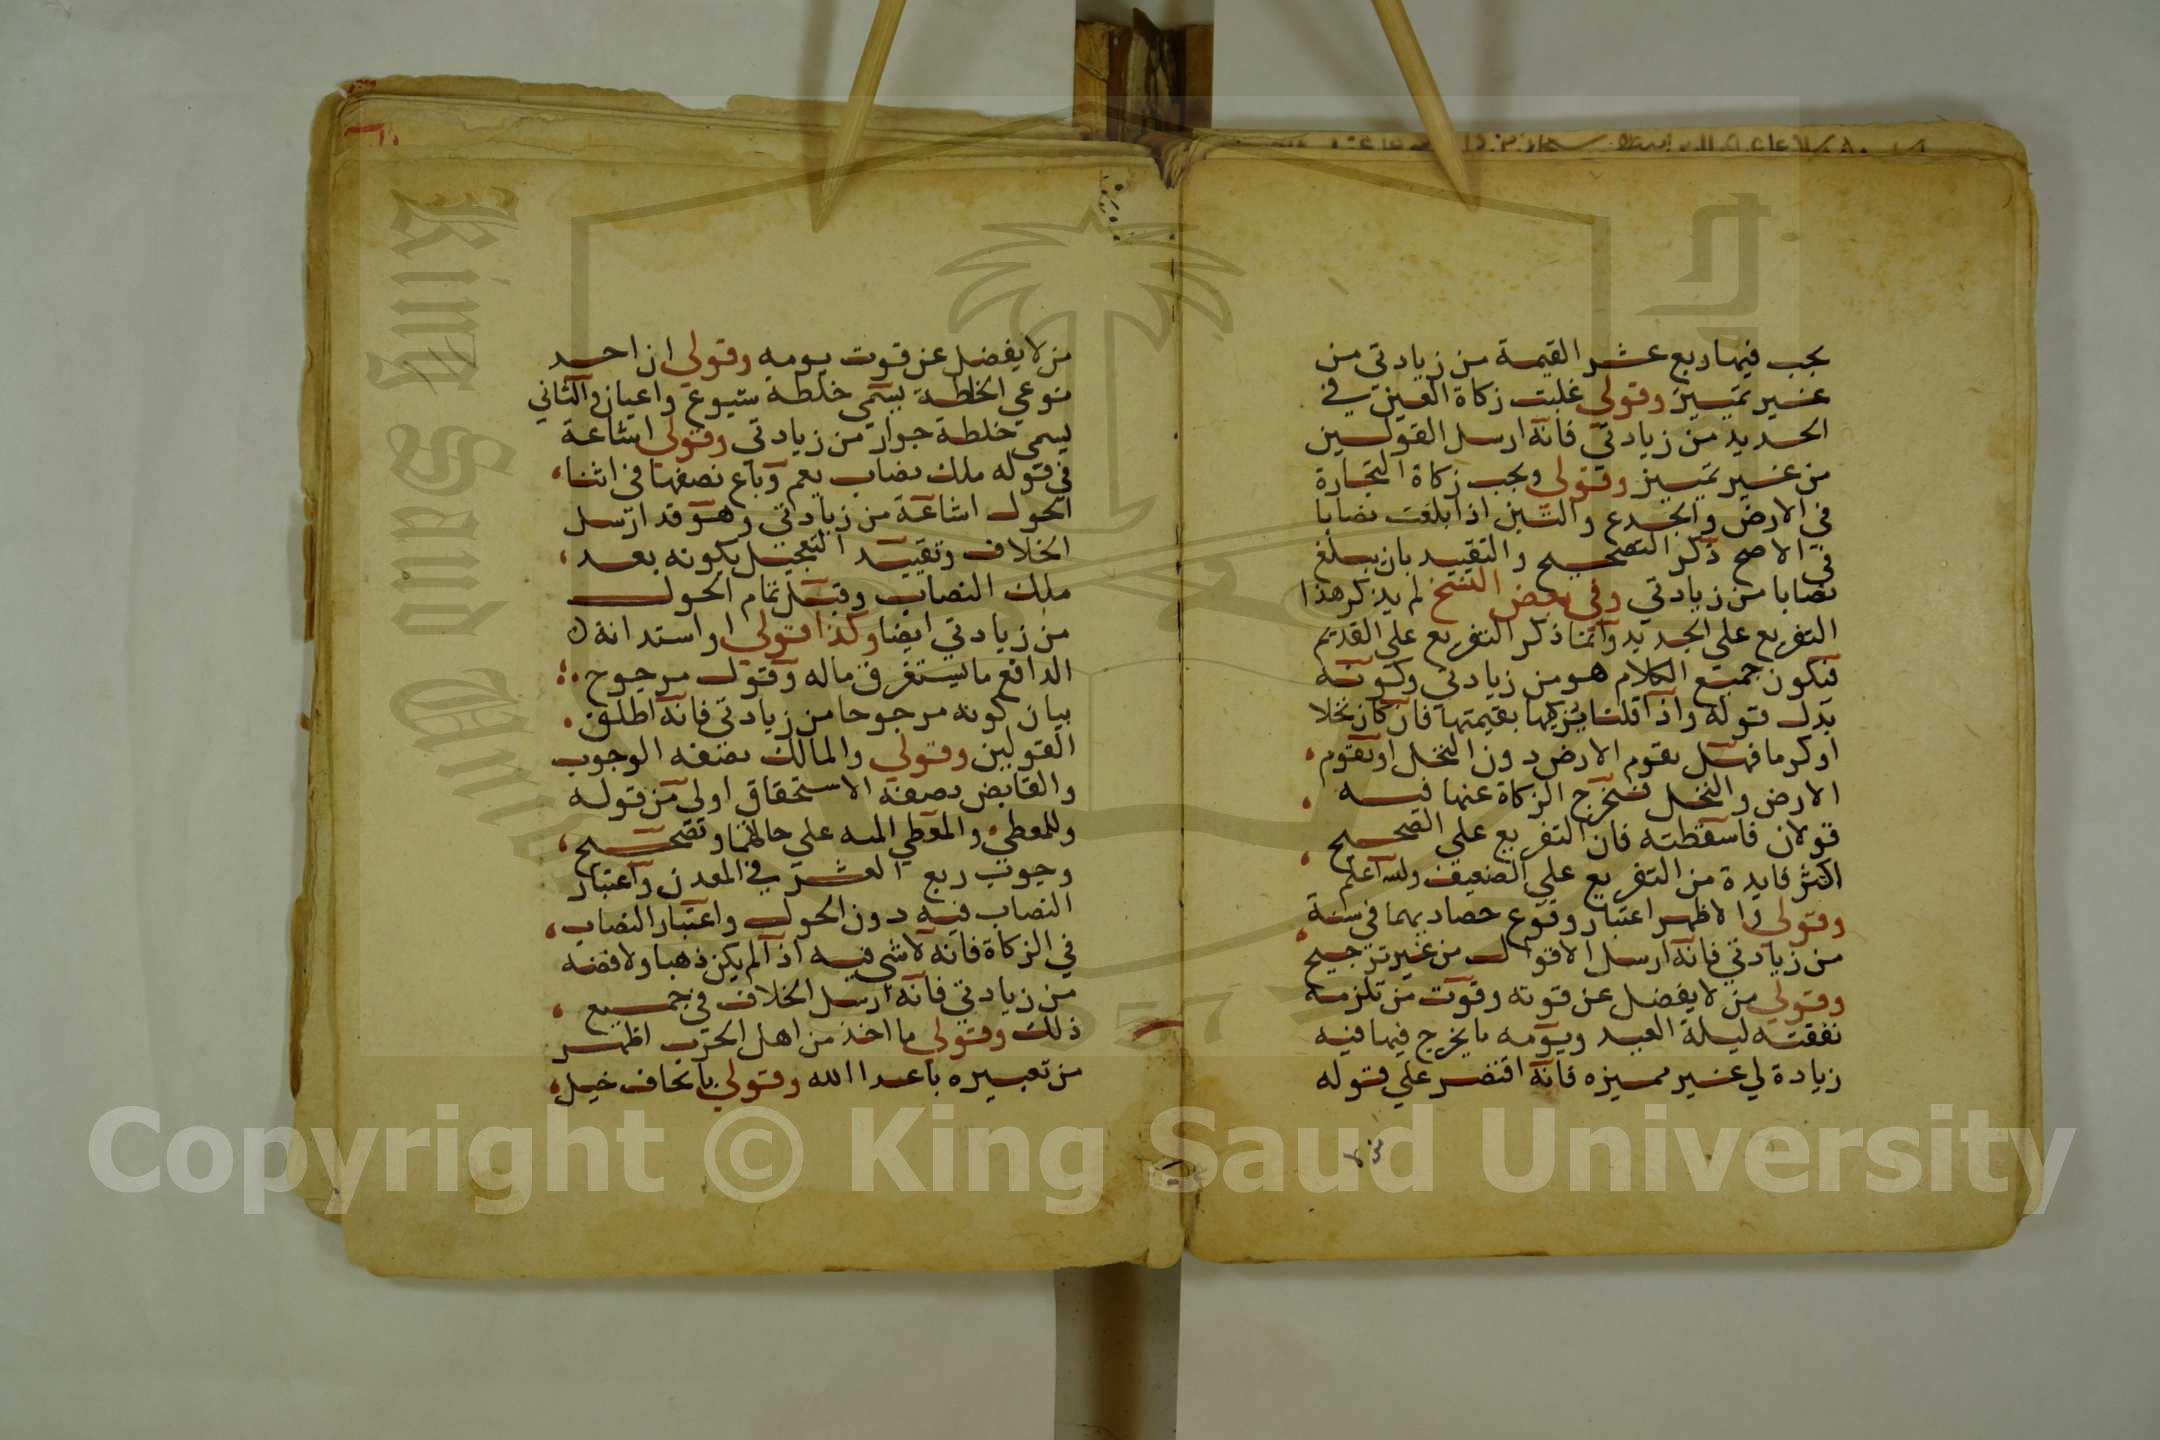 يجب فيها ربع عشر القيمة من زيادتي من
غير تمييز وقولي غلبت زكاة العين في
الجديد من زيادتي فانه ارسل القولين
من غير تمييز وقولي ويجب زكاة التجارة
في الارض والجذع والتبن اذا بلغت نصابا
في الاصح ذكر التصحيح والتقييد بان يبلغ
نصابا من زيادتي وفي بعض النسخ لم يذكر هذا
التفريع على الجديد وانما ذكر التفريع على القديم
فيكون جميع الكلام هو من زيادتي وكونه
بدل قوله واذا قلنا يزكيها بقيمتها فان كان نخلا
او كرما فهل يقوم الارض دون النخل او يقوم
الارض والنخل فتخرج الزكاة عنها فيه
قولان فاسقطته فان التفريع على الصحيح
اكثر فايدة من التفريع علي الضعيف والله اعلم
وقولي والاظهر اعتبار وقوع حصاديهما في سنة
من زيادتي فانه ارسل الاقوال من غير ترجيح
وقولي من لا يفضل عن قوته وقوت من تلزمه
نفقته ليلة العيد ويومه ما يخرج فيها فيه
زيادة لي غير مميزه فانه اقتصر علي قوله
من لا
من لا يفضل عن قوت يومه وقولي ان احد
نوعي الخلطة يسمى خلطة شيوع واعيان والثاني
يسمى خلطة جوار من زيادتي وقولي اشاعة
في قوله ملك نصاب نعم وباع نصفها في اثناء
الحول اشاعة من زياداتي وهو قد ارسل
الخلاف وتقييد التعجيل بكونه بعد
ملك النصاب وقبل تمام الحول
من زيادتي ايضا وكذا قولي او استدانة
الدافع ما يستغرق ماله وقول مرجوح
بيان كونه مرجوحا من زيادتي فانه اطلق
القولين وقولي والمالك بصفه الوجوب
والقابض بصفة الاستحقاق اولى من قوله
وللمعطي والمعطي اليه علي حالهما وتصحيح
وجوب ربع العشر في المعدن واعتبار
النصاب فيه دون الحول واعتبار النصاب
في الزكاة فانه لا شي فيه اذا لم يكن ذهبا ولا فضه
من زيادتي فانه ارسل الخلاف في جميع
ذلك وقولي ما اخذ من اهل الحرب اظهر
من تعبيره باعدا الله وقولي بايجاف خيل
Copyright © King Saud University
King Saud University
1957